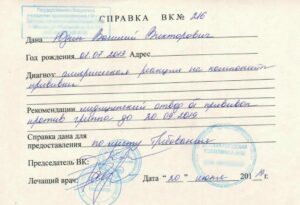 СПРАВКА ВК № 216
Дана Юдин Василий Викторович
Год рождения 01.07.2017 Адрес
Диагноз: аллергическая реакция на компоненты
прививки
Рекомендации медицинский отвод от прививок
против гриппа до 20.09.2019
Справка дана для
предоставления по месту требования
Председатель ВК:
Лечащий врач: Дата "20" июня 2019 г.